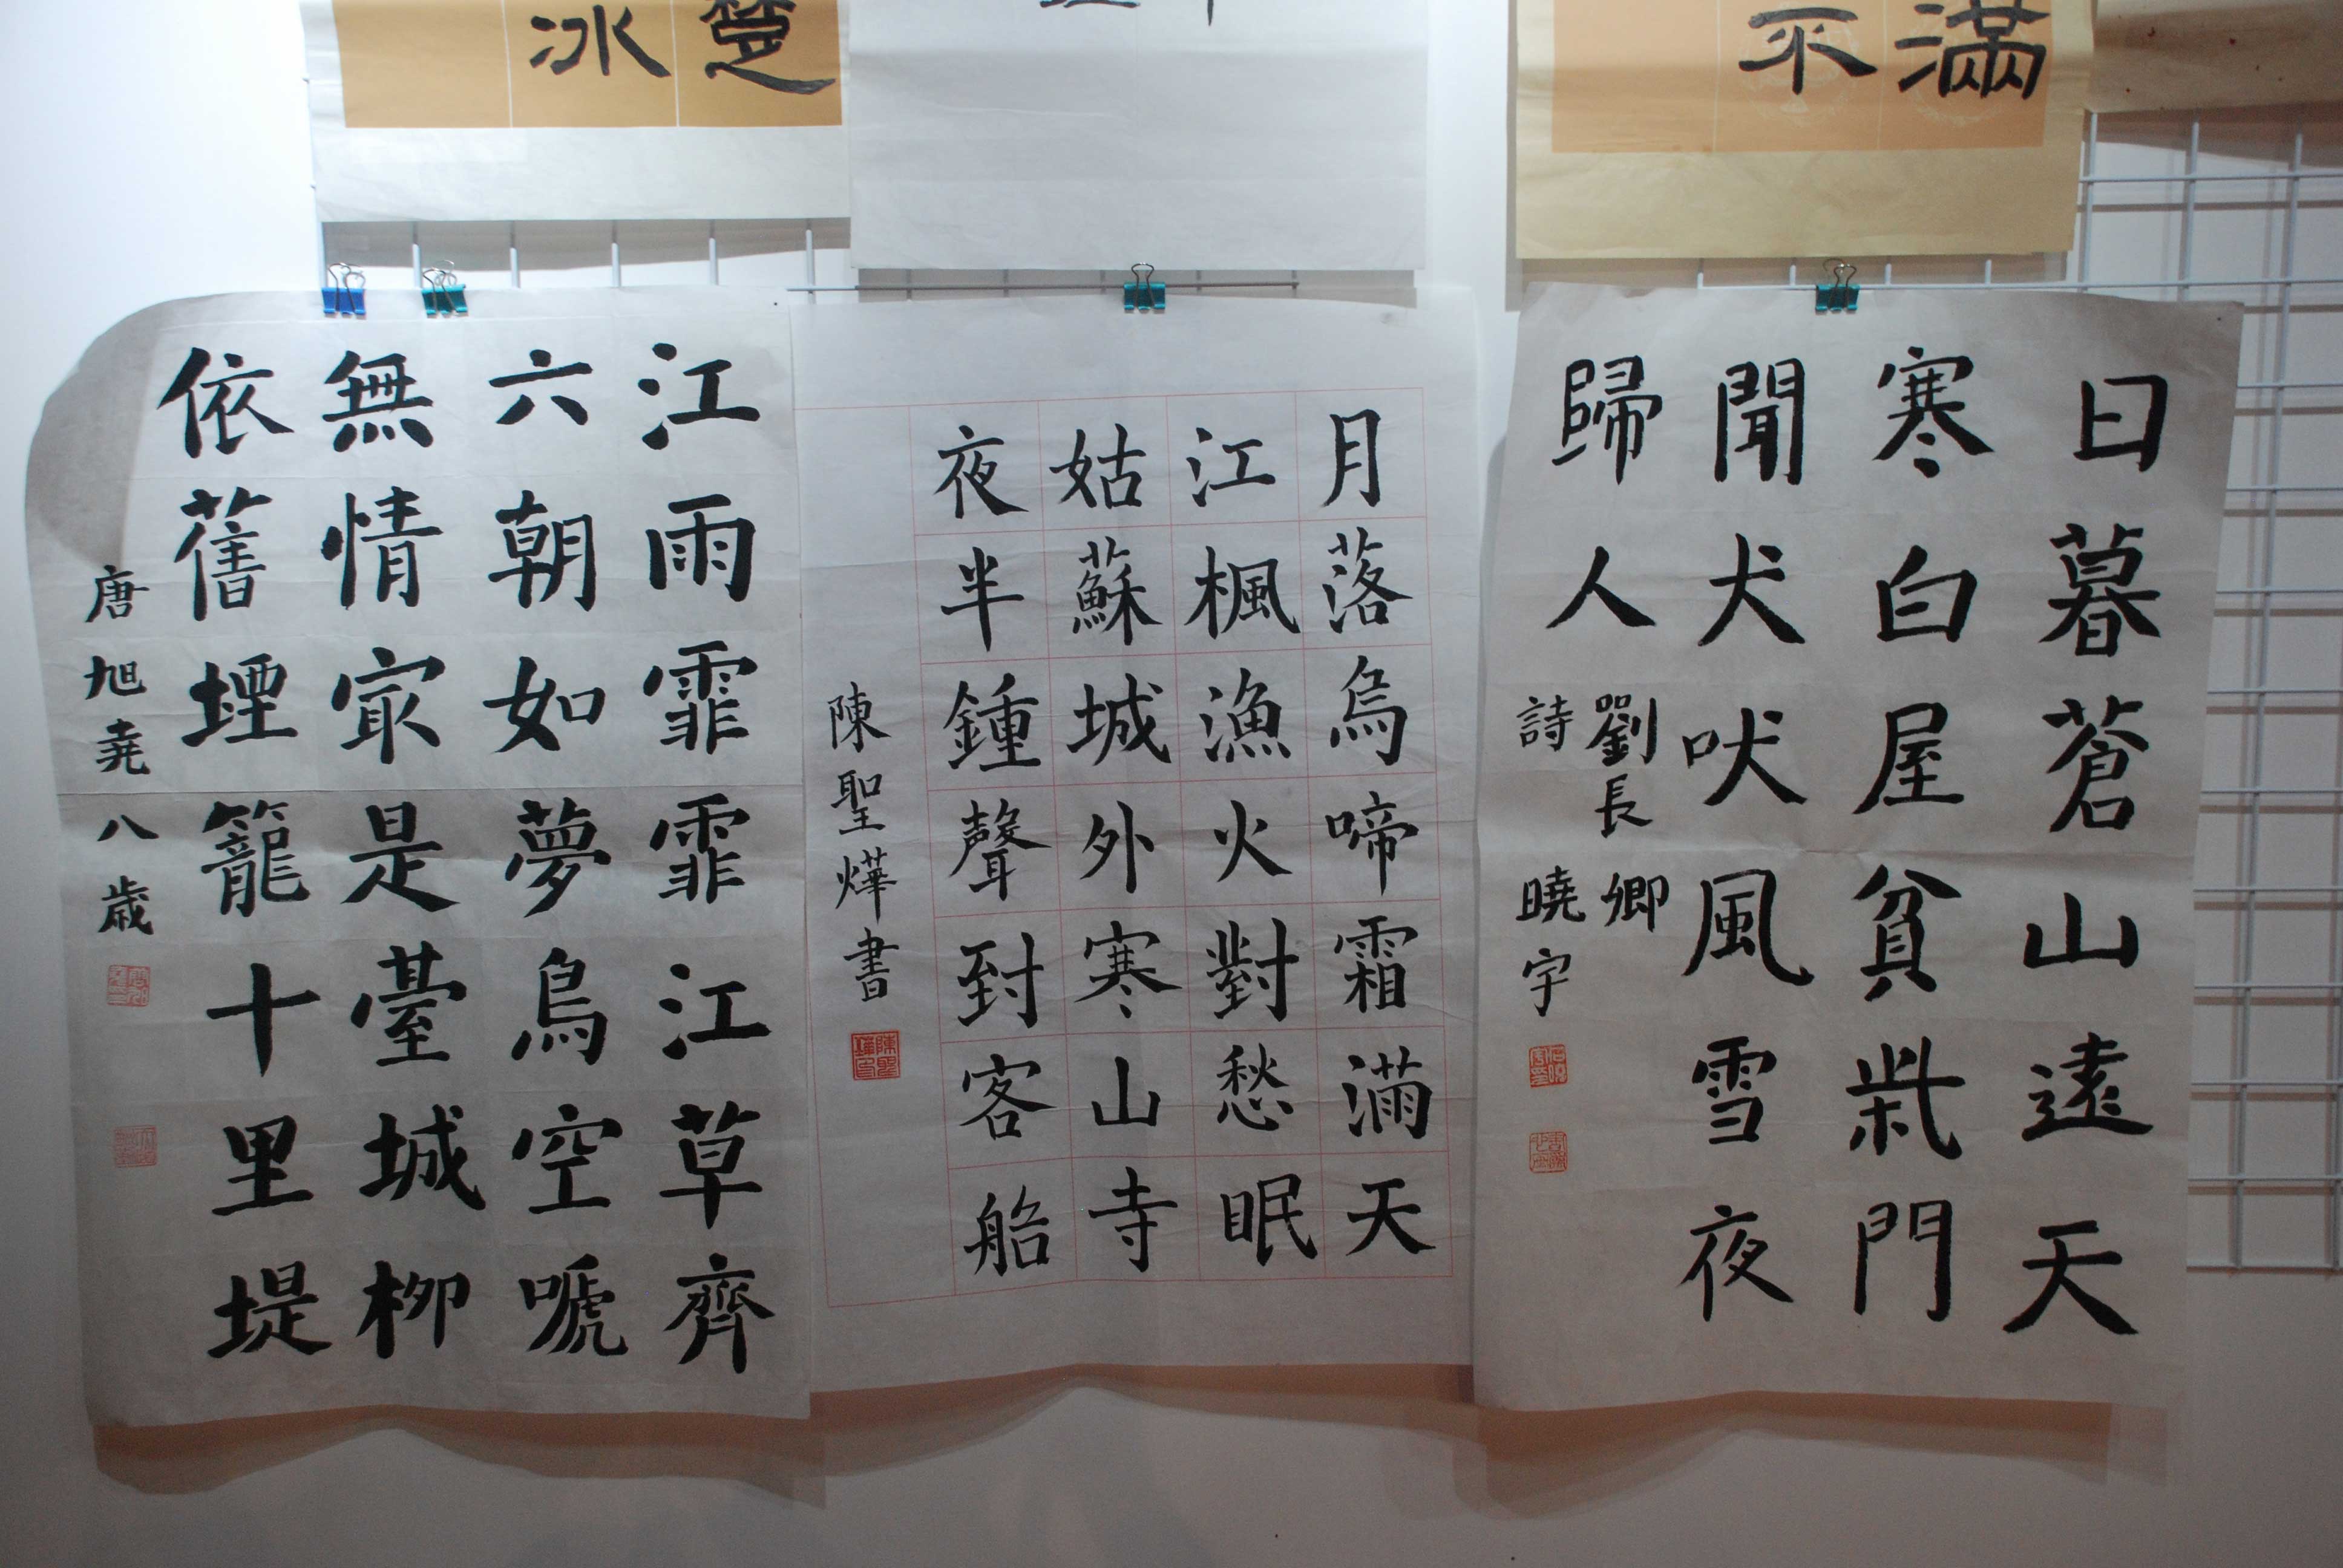 滿
不
楚
冰
日暮蒼山遠天
寒白屋貧柴門
聞犬吠風雪夜
歸人
劉長卿
詩 曉宇
月落烏啼霜滿天
江楓漁火對愁眠
姑蘇城外寒山寺
夜半鍾聲到客船
陳聖燁書
陳聖燁印
江雨霏霏江草齊
六朝如夢鳥空嗁
無情冣是臺城柳
依舊堙籠十里堤
唐旭堯八歲